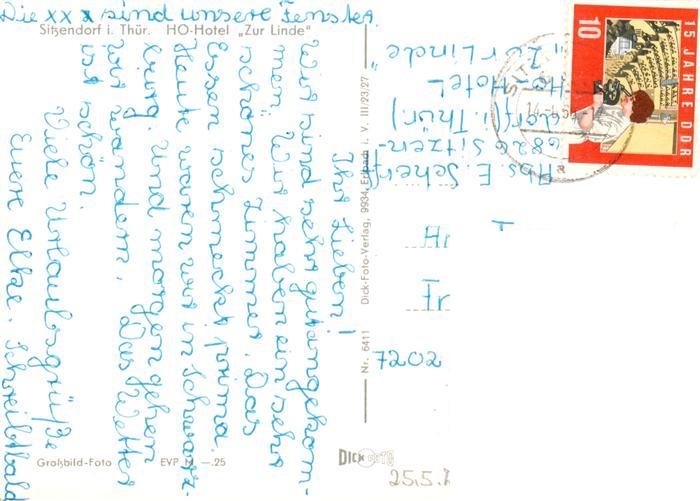 Die xxx sind unsere Fenster.
Sitzendorf i. Thür. HO-Hotel „Zur Linde"
Ihr Lieben!
Wir sind sehr gut angekom-
men. Wir haben ein sehr
schönes Zimmer. Das
Essen schmeckt prima.
Heute waren wir in Schwarz-
burg. Und morgen gehen
wir wandern. Das Wetter
ist schön.
Viele Urlaubsgrüße
Eure Elke. Schreibt bald
Großbild-Foto EVP M —.25
Nr. 6411 Dick-Foto-Verlag, 9934 Erlbach i. V. III/23/27
DICK FOTO
15 JAHRE DDR
10
a
Abs. E. Scherf
6826 Sitzen-
dorf i. Thür.)
HO-Hotel-
"Zur Linde"
Hr
Fr
7202
25.5.